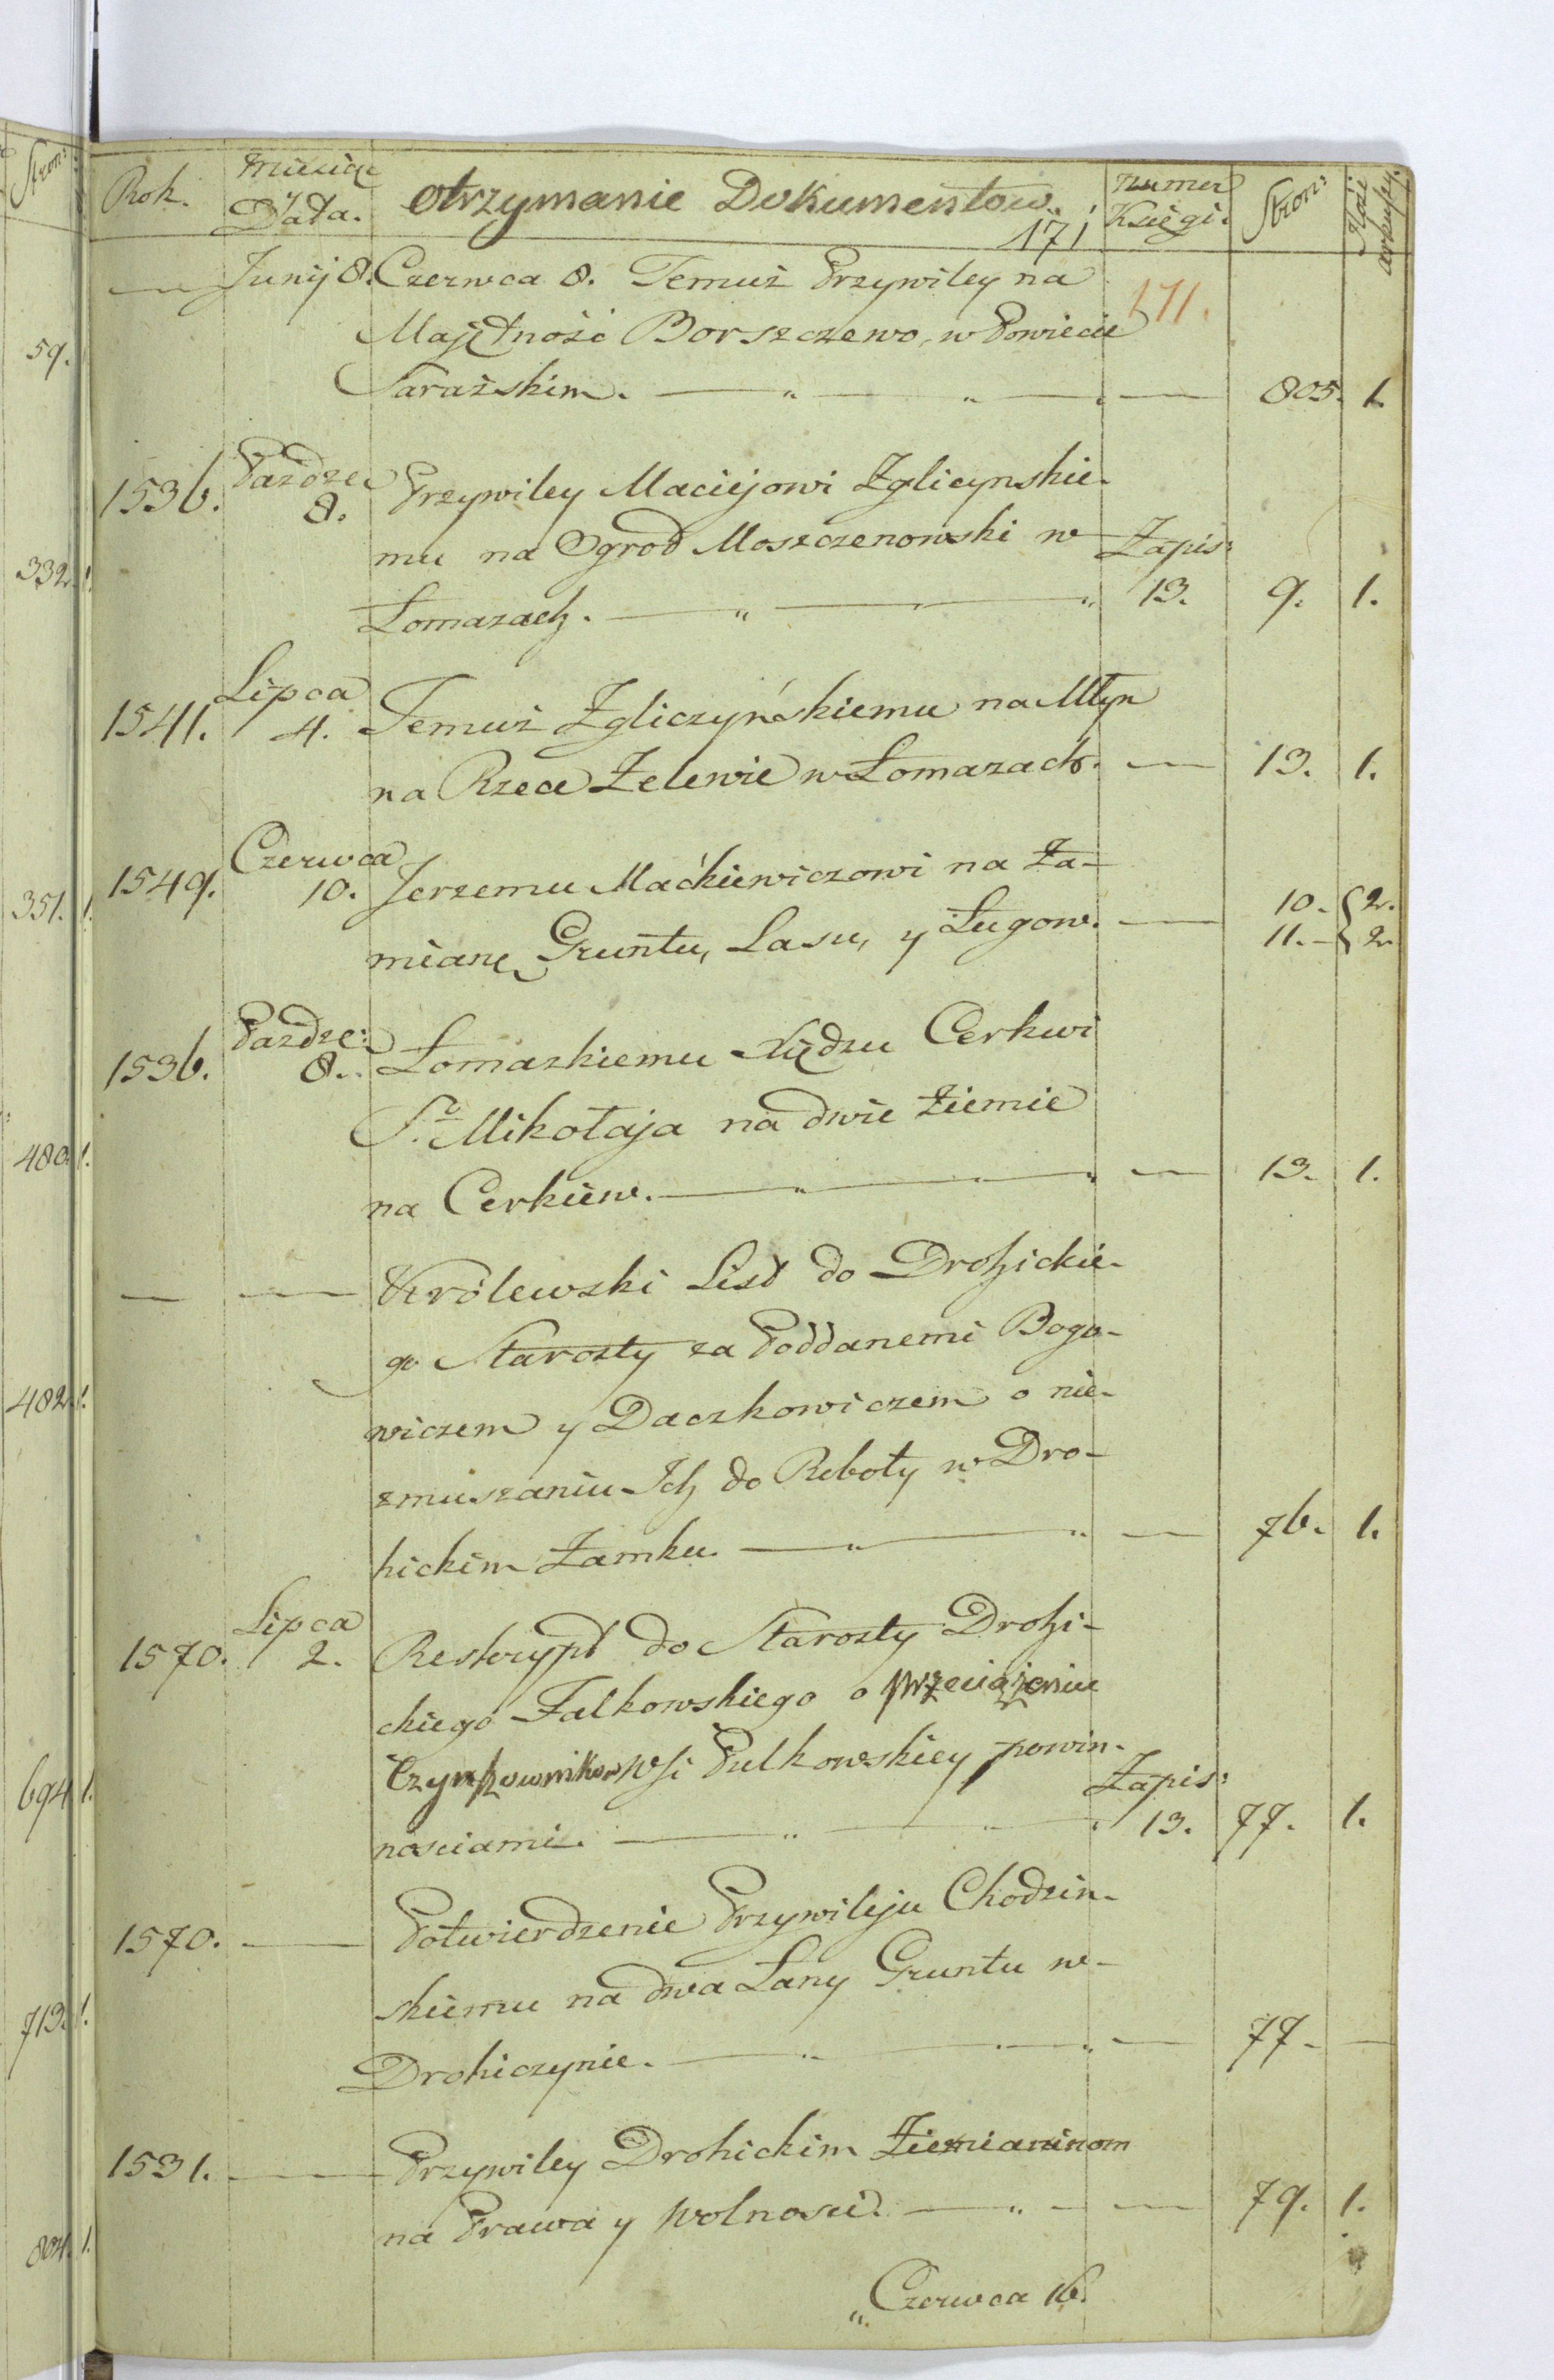 Stron:
Rok. Miesiąc y Data. Otrzymanie Dokumentow. Numer Księgi. Stron: Ilość arkuszy.
171
171.
— Junij 8. Czerwca 8. Temuż Przywiley na
Majętność Borszczewo, w Powiecie
Saražskim. — „ — „ — — 805. 1.
1536. Pazdzer 8. Przywiley Maciejowi Zgliczynskie-
mu na Ogrod Moszczenowski w Zapis:
Łomazach. — „ — „ 13. 9. 1.
1541. Lipca 4. Temuż Zgliczyńskiemu na Młyn
na Rzece Zelewie w Łomazach. — 13. 1.
1549. Czerwca 10. Jerzemu Maćkiewiczowi na Za-
mianę Gruntu, Lasu, y Ługow. — 10. { 2.
11. { 2.
1536. Pazdze: 8. Łomazkiemu Xiędzu Cerkwi
Sº Mikołaja na dwie Ziemie
na Cerkiew. — „ — „ — 13. 1.
— — Królewski List do Drohickie-
go Starosty za Poddanemi Bogo-
wiczem y Daczkowiczem o nie-
zmuszaniu Ich do Roboty w Dro-
hickim Zamku. — „ — „ — 76. 1.
1570. Lipca 2. Reskrypt do Starosty Drohi-
ckiego Falkowskiego o przeciążeniu
Czynszownikow Wsi Pulkowskiey powin-
Zapis:
nosciami. — „ — „ 13. 77. 1.
1570. — Potwierdzenie Przywileju Chodzin-
skiemu na dwa Łany Gruntu w-
Drohiczynie. — „ — „ — 77. —
1531. — Przywiley Drohickim Ziemianinom
na Prawa y Wolnosci. — „ — — 79. 1.
„ Czerwca 16.
59.
332. 1.
351. 1.
480. 1.
482. 1.
694. 1.
713. 1.
804. 1.